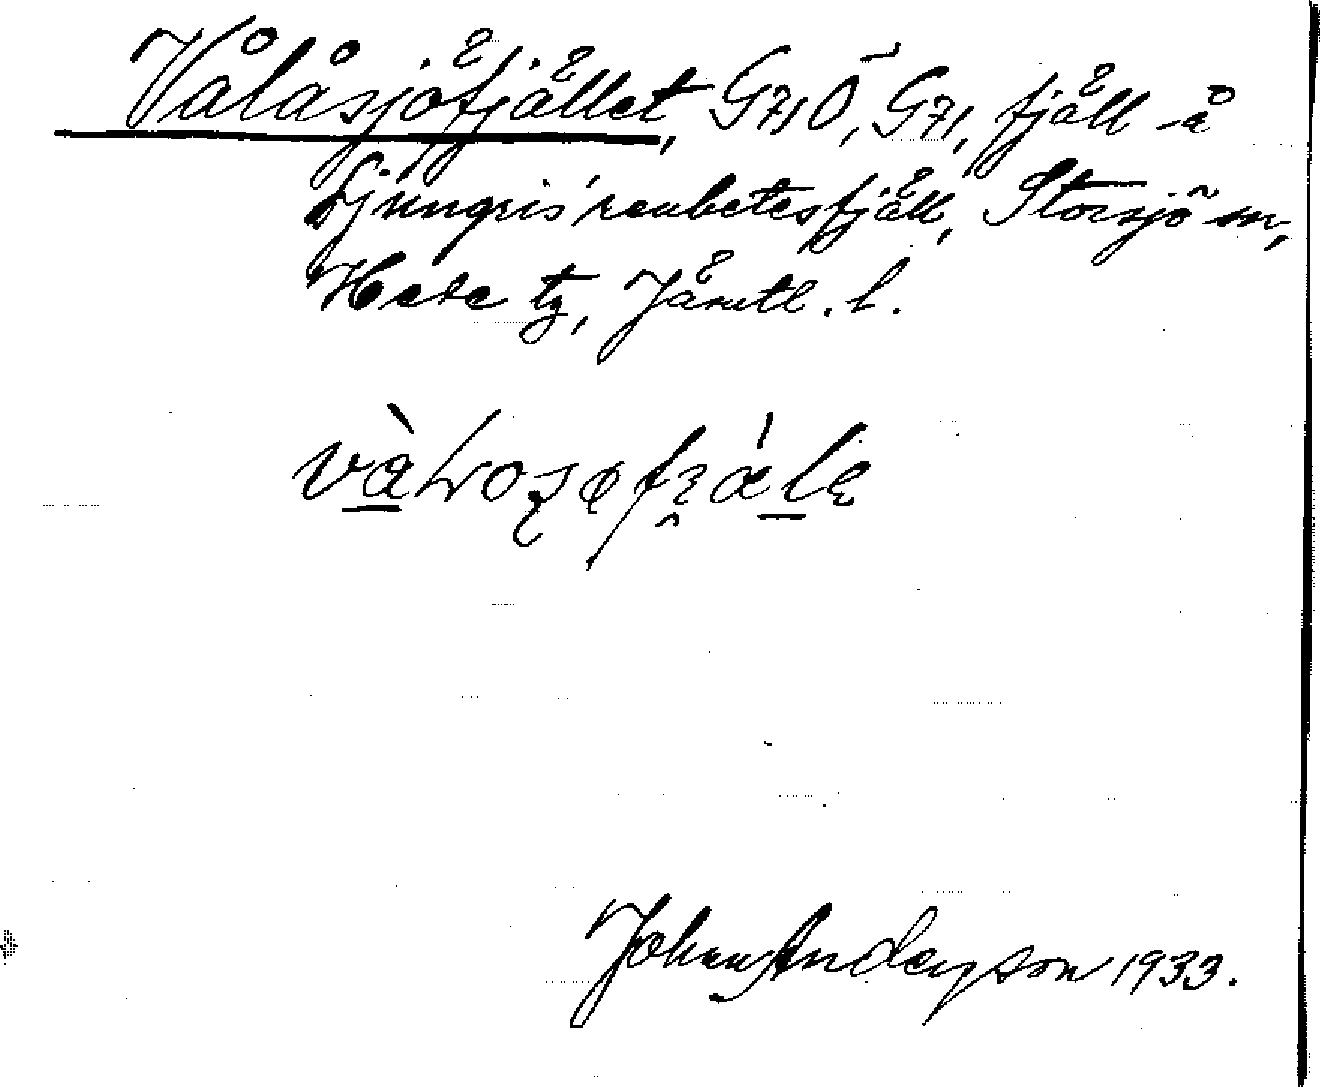 Vålåsjöfjället, G71Ö, G71, fjäll å
Ljungris' renbetesfjäll, Storsjö sn,
Hede tg, Jämtl. l.
Johan Anderson 1933.